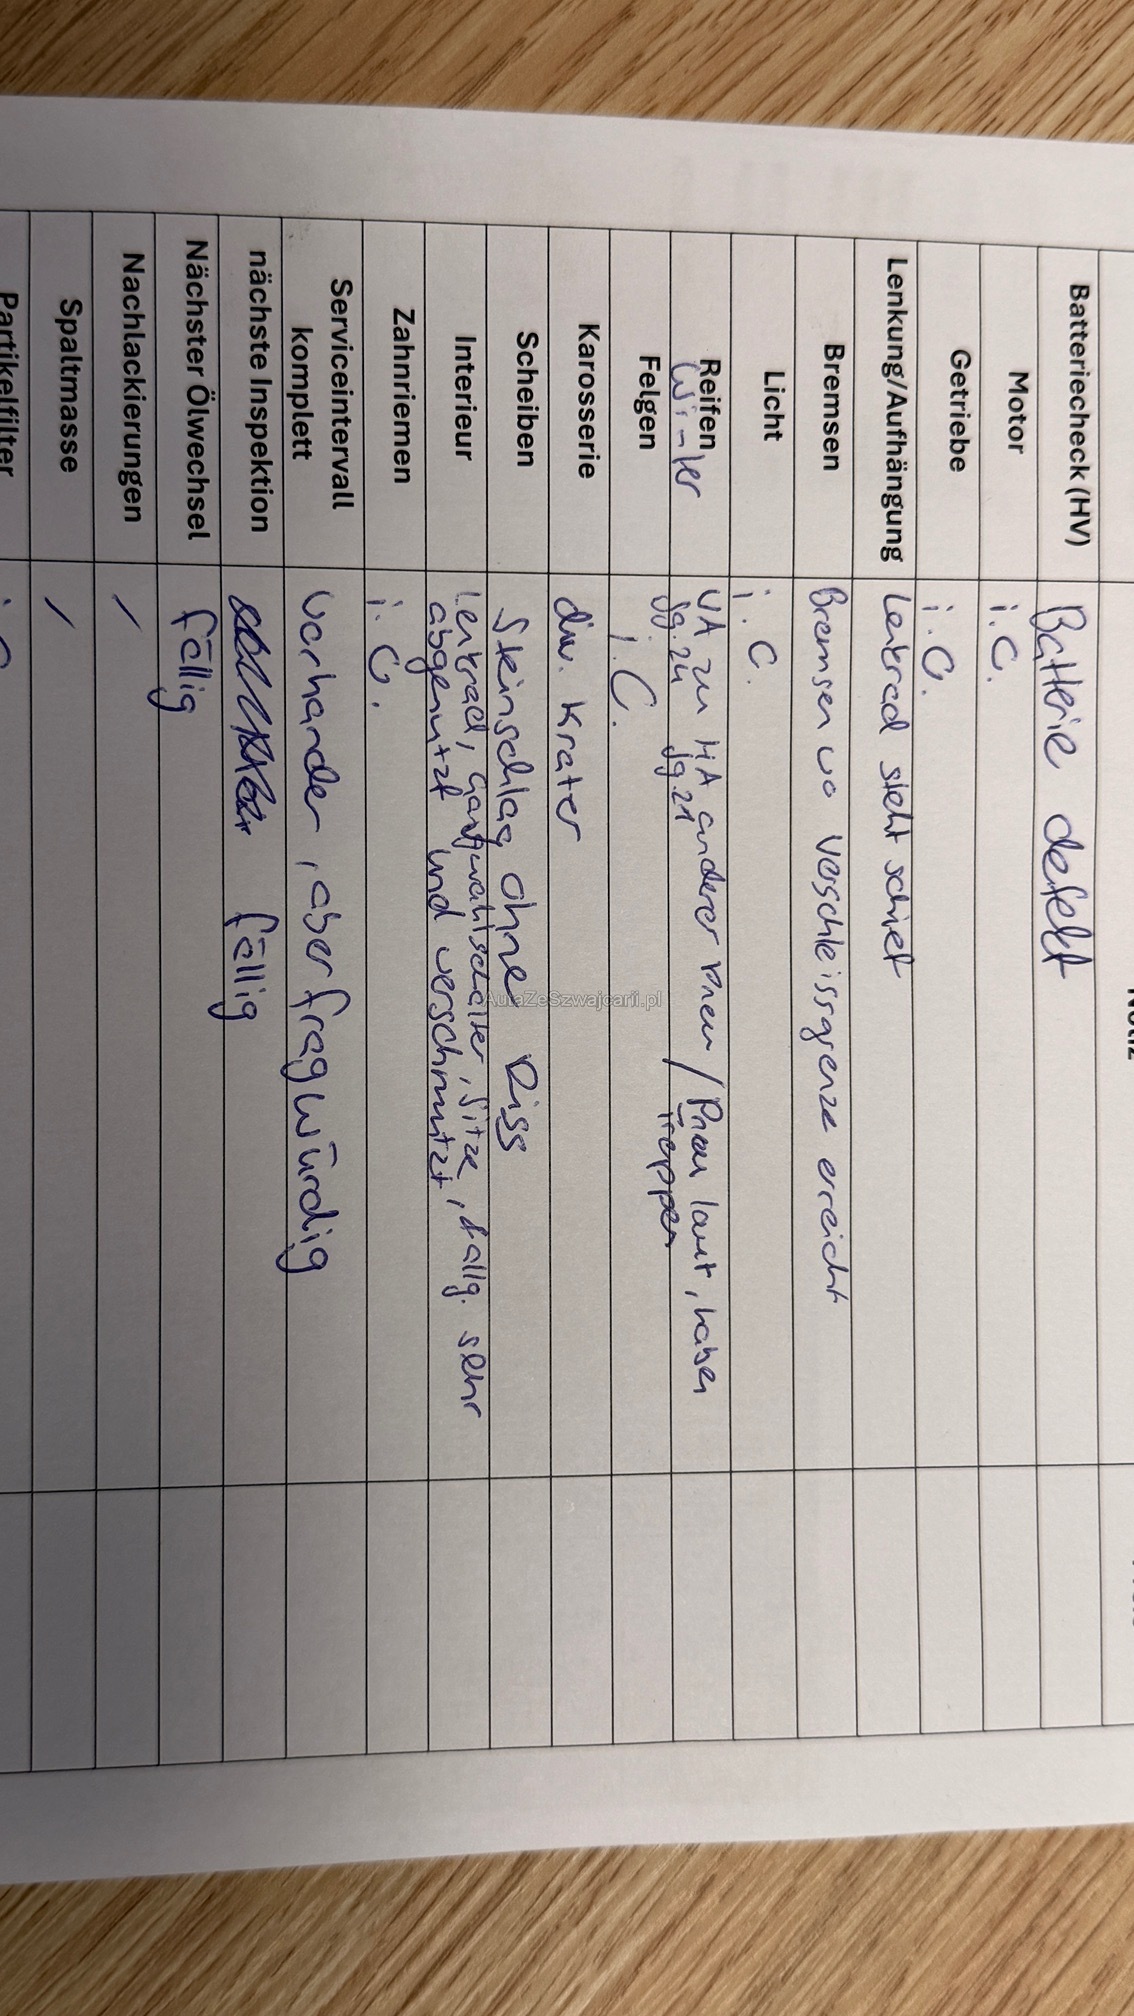 Notiz
Batteriecheck (HV) Batterie defekt
Motor i.O.
Getriebe i.O.
Lenkung/Aufhängung Lenkrad steht schief
Bremsen Bremsen VA Verschleissgrenze erreicht
Licht i.O.
Reifen VA zu HA anderer Pneu / Pneu laut, haben
Winter Jg. 24 Jg. 21 Treppen
Felgen i.O.
Karosserie div. Krater
Scheiben Steinschlag ohne Riss
Interieur Lenkrad, Gangwahlschalter, Sitze, allg. sehr
abgenutzt und verschmutzt
Zahnriemen i.O.
Serviceintervall
komplett vorhanden, aber fragwürdig
nächste Inspektion fällig
Nächster Ölwechsel fällig
Nachlackierungen /
Spaltmasse /
Partikelfilter
AutaZeSzwajcarii.pl